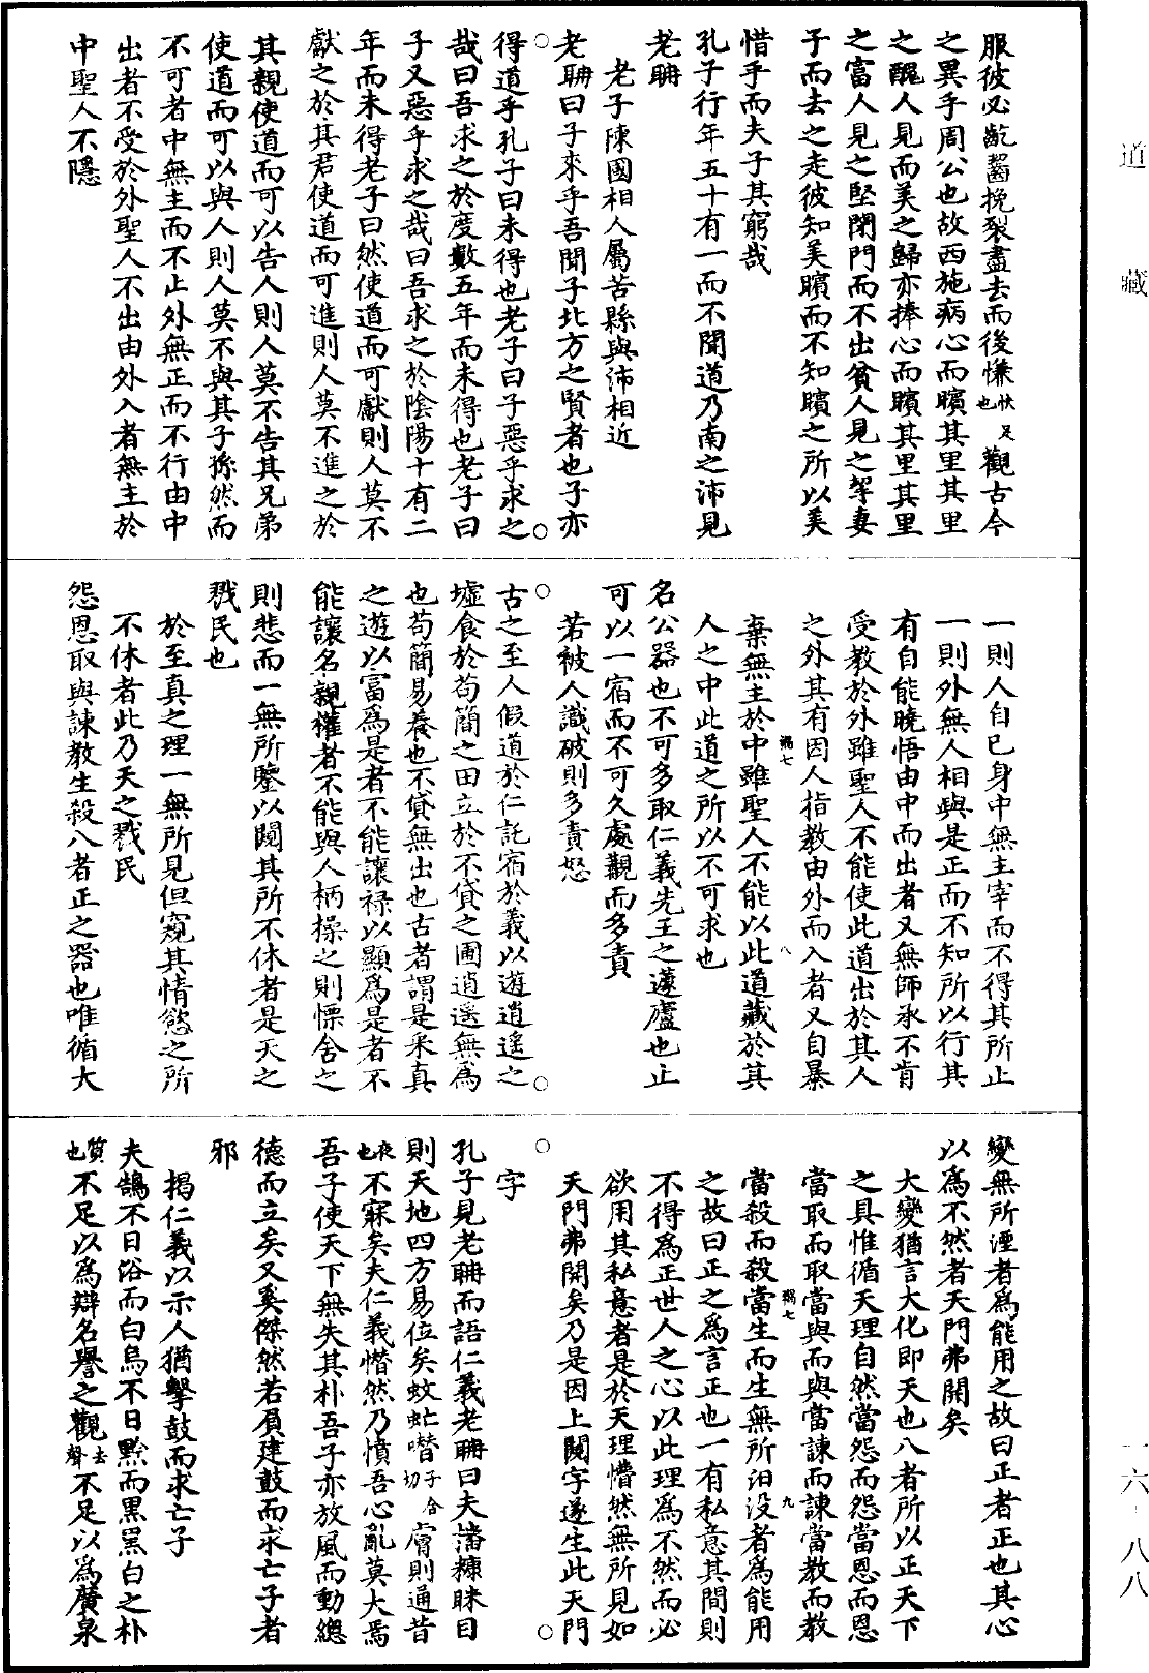 道藏
服彼必齕齧挽裂盡去而後慊快足也觀古今
之異乎周公也故西施病心而矉其里其里
之醜人見而美之歸亦捧心而矉其里其里
之富人見之堅閉門而不出貧人見之挈妻
子而去之走彼知美矉而不知矉之所以美
惜乎而夫子其窮哉
孔子行年五十有一而不聞道乃南之沛見
老聃
老子陳國相人屬苦縣與沛相近
老聃曰子來乎吾聞子北方之賢者也子亦
得道乎孔子曰未得也老子曰子惡乎求之
哉曰吾求之於度數五年而未得也老子曰
子又惡乎求之哉曰吾求之於陰陽十有二
年而未得老子曰然使道而可獻則人莫不
獻之於其君使道而可進則人莫不進之於
其親使道而可以告人則人莫不告其兄弟
使道而可以與人則人莫不與其子孫然而
不可者中無主而不止外無正而不行由中
出者不受於外聖人不出由外入者無主於
中聖人不隱
一則人自已身中無主宰而不得其所止
一則外無人相與是正而不知所以行其
有自能曉悟由中而出者又無師承不肯
受教於外雖聖人不能使此道出於其人
之外其有因人指教由外而入者又自暴
棄無主於中雖聖人不能以此道藏於其
人之中此道之所以不可求也
名公器也不可多取仁義先王之蘧廬也止
可以一宿而不可久處覯而多責
若被人識破則多責怒
古之至人假道於仁託宿於義以遊逍遙之
墟食於苟簡之田立於不貸之圃逍遥無爲
也苟簡易養也不貸無出也古者謂是采真
之遊以富爲是者不能讓祿以顯爲是者不
能讓名親權者不能與人柄操之則慄舍之
則悲而一無所鑒以闚其所不休者是天之
戮民也
於至真之理一無所見但窺其情慾之所
不休者此乃天之戮民
怨恩取與諫教生殺八者正之器也唯循大
變無所湮者爲能用之故曰正者正也其心
以爲不然者天門弗開矣
大變猶言大化即天也八者所以正天下
之具惟循天理自然當怨而怨當恩而恩
當取而取當與而與當諫而諫當教而教
當殺而殺當生而生無所汨没者爲能用
之故曰正之爲言正也一有私意其間則
不得爲正世人之心以此理爲不然而必
欲用其私意者是於天理懵然無所見如
天門弗開矣乃是因上闚字遂生此天門
字
孔子見老聃而語仁義老聃曰夫播糠眯目
則天地四方易位矣蚊虻噆子合切膚則通昔
夜也不寐矣夫仁義憯然乃憤吾心亂莫大焉
吾子使天下無失其朴吾子亦放風而動總
德而立矣又奚傑然若負建鼓而求亡子者
邪
揭仁義以示人猶擊鼓而求亡子
夫鵠不日浴而白烏不日黔而黑黑白之朴
質也不足以爲辯名譽之觀去聲不足以爲廣泉
一六－八八